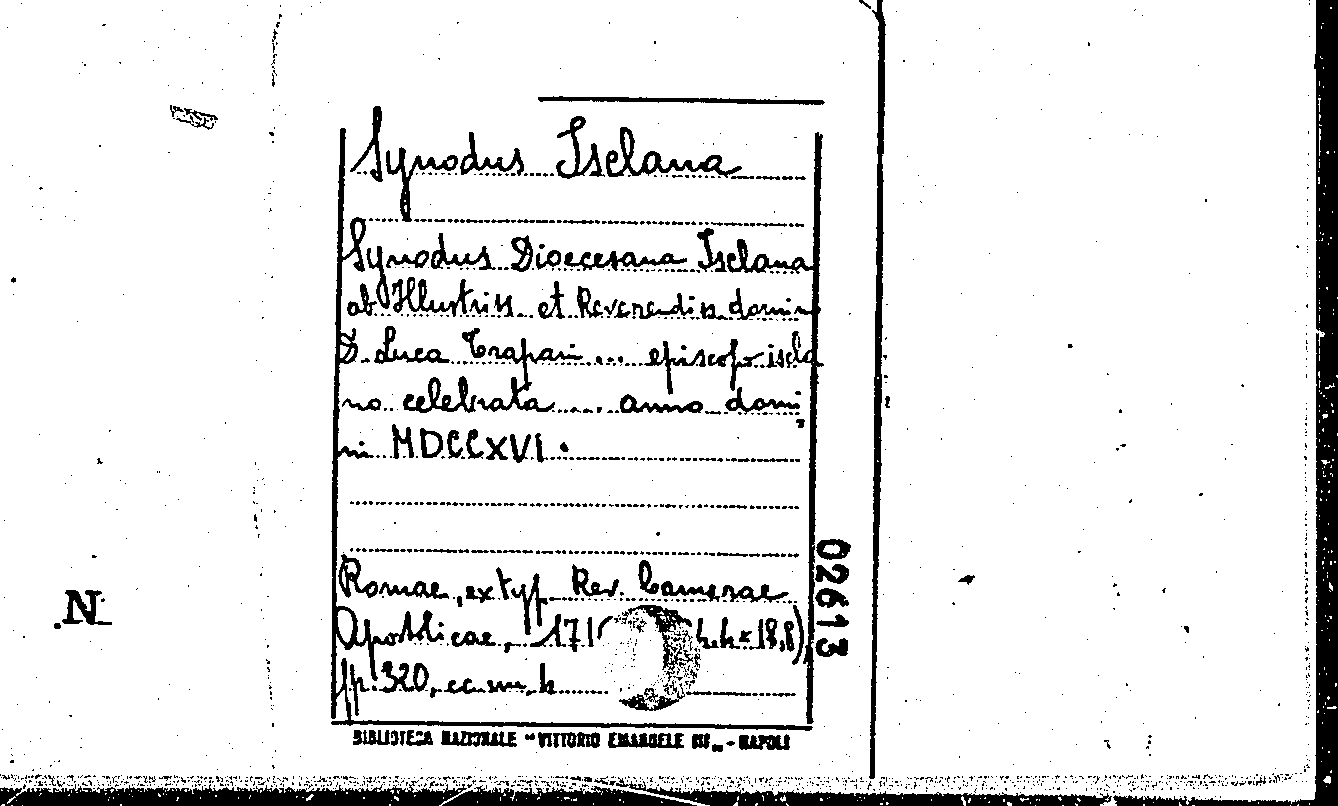 Synodus Isclana
Synodus Dioecesana Isclana
ab Illustriss. et Reverendiss. domin
D. Luca Trapani ... episcopo iscla
no celebrata .... anno domi
ni MDCCXVI.
Romae, ex typ. Rev. Camerae
Apostlicae, 171
pp. 320, cc. nn. 4
BIBLIOTECA NAZIONALE "VITTORIO EMANUELE III„ - NAPOLI
02613
.N.